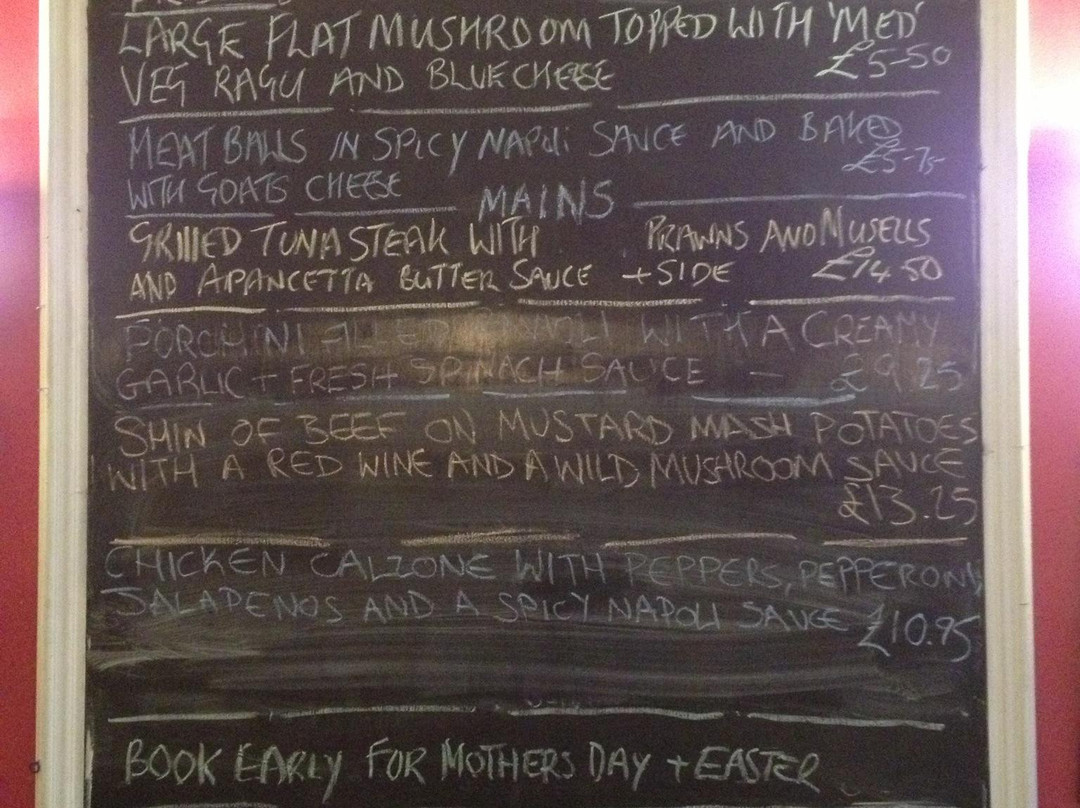 LARGE FLAT MUSHROOM TOPPED WITH 'MED'
VEG RAGU AND BLUE CHEESE £5-50
MEATBALLS IN SPICY NAPOLI SAUCE AND BAKED
WITH GOATS CHEESE £5-75
MAINS
GRILLED TUNA STEAK WITH PRAWNS AND MUSELLS
AND A PANCETTA BUTTER SAUCE + SIDE £14.50
PORCHINI FILLED WITH A CREAMY
GARLIC + FRESH SPINACH SAUCE - £9.25
SHIN OF BEEF ON MUSTARD MASH POTATOES
WITH A RED WINE AND A WILD MUSHROOM SAUCE
£13.25
CHICKEN CALZONE WITH PEPPERS, PEPPERONI,
JALAPENOS AND A SPICY NAPOLI SAUCE £10.95
BOOK EARLY FOR MOTHERS DAY + EASTER